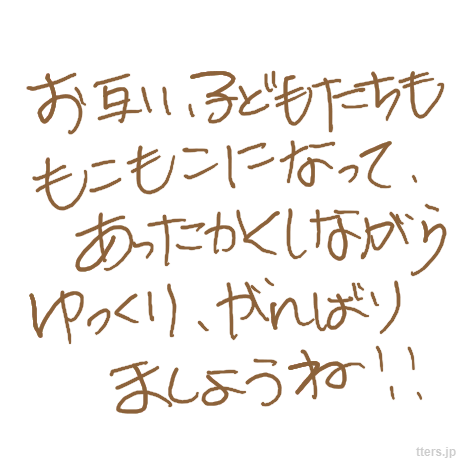 お互い、子どもたちも
もこもこになって、
あったかくしながら
ゆっくり、がんばり
ましょうね!!
tters.jp